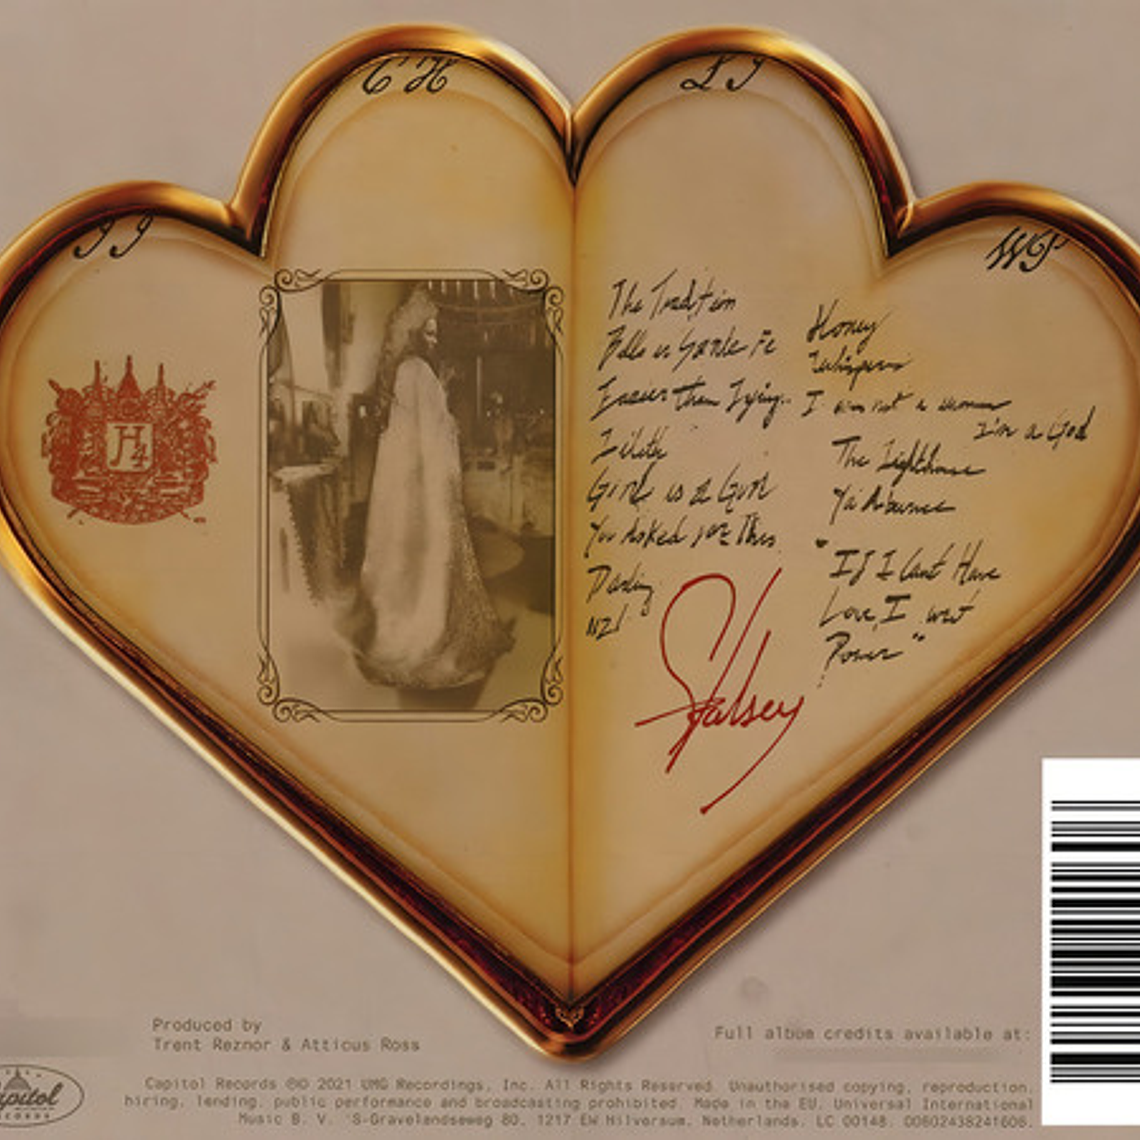 C H
L J
J J
WP
H
4
The Tradition
Bells in Santa Fe
Easier than Lying
Lilith
Girl is a Gun
You Asked For This
Darling
1121
Honey
Whispers
I am not a woman
I'm a God
The Lighthouse
Ya'Aburnee
"If I Cant Have
Love, I want
Power"
Halsey
Produced by
Trent Reznor & Atticus Ross
Full album credits available at:
Capitol
RECORDS
Capitol Records ℗© 2021 UMG Recordings, Inc. All Rights Reserved. Unauthorised copying, reproduction,
hiring, lending, public performance and broadcasting prohibited. Made in the EU. Universal International
Music B. V. 'S-Gravelandseweg 80, 1217 EW Hilversum, Netherlands. LC 00148. 00602438241606.